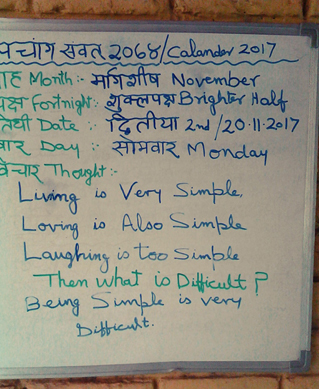 पंचांग संवत 2068/Calander 2017
माह Month:- मार्गशीर्ष November
पक्ष Fortnight:- शुक्लपक्ष Brighter Half
तिथी Date :- द्वितीया 2nd/20.11.2017
वार Day :- सोमवार Monday
विचार Thought :-
Living is Very Simple.
Loving is Also Simple
Laughing is too Simple
Then what is Difficult ?
Being Simple is very
Difficult.